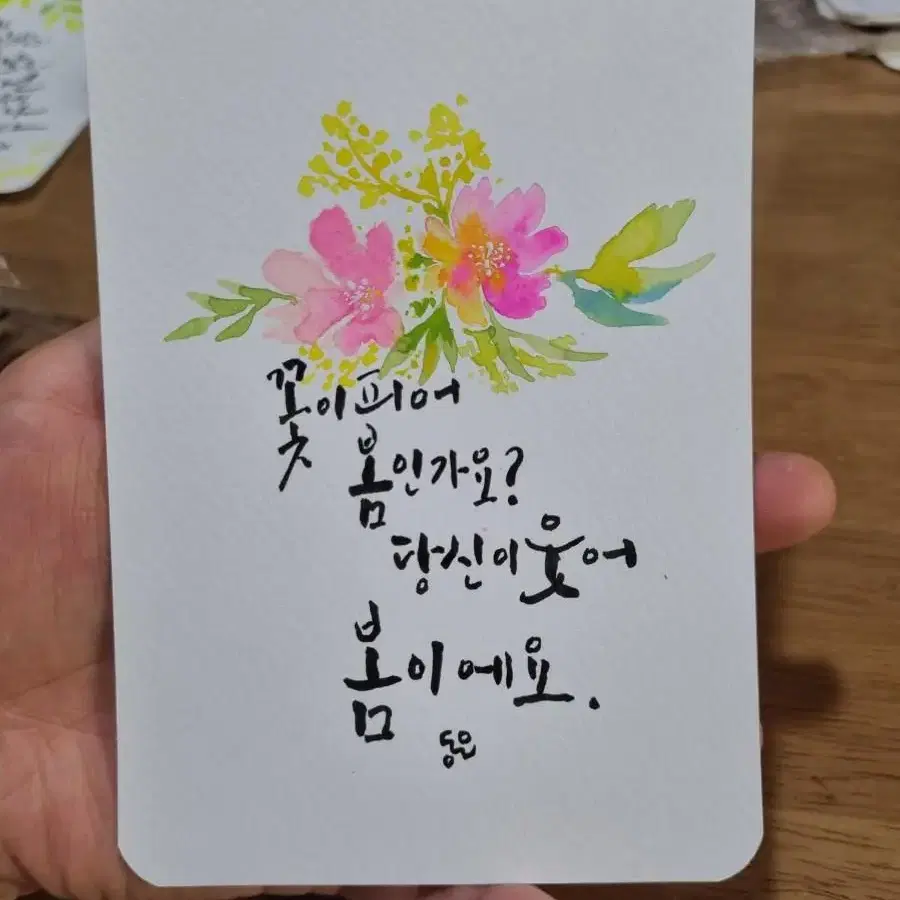 꽃이피어
봄인가요?
당신이웃어
봄이에요.
동은